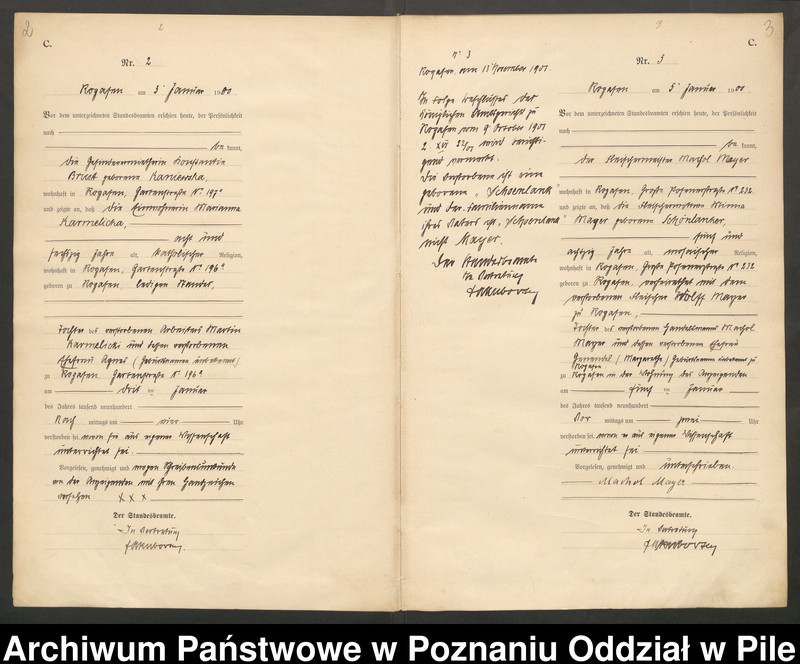 2
2
C.
Nr. 2
Rogasen am 3. Januar 1900.
Vor dem unterzeichneten Standesbeamten erschien heute, der Persönlichkeit
nach
be kannt,
die
geborene Karniewska,
wohnhaft in Rogasen, Gartenstraße No 197a
und zeigte an, daß die Marianna
Karmelicka,
acht und
sechzig Jahre alt, katholischer Religion,
wohnhaft in Rogasen, Gartenstraße No 196a
geboren zu Rogasen, ledigen Standes,
Tochter des verstorbenen Arbeiters Martin
Karmelicki und dessen verstorbenen
Ehefrau Agnes (Geburtsname unbekannt)
zu Rogasen Gartenstraße No 196a
am drei ten Januar
des Jahres tausend neunhundert
Nach mittags um vier Uhr
verstorben sei, wovon sie aus eigener Wissenschaft
unterrichtet sei.
Vorgelesen, genehmigt und wegen Schreibensunkunde
von der Anzeigenden mit ihren Handzeichen
versehen. x x x
Der Standesbeamte.
In Vertretung
No 3
Rogasen, am 13 November 1901.
In Folge Beschlusses des
Königlichen Amtsgerichts zu
Rogasen vom 9 October 1901
wird berichti-
gend vermerkt:
Die Verstorbene ist eine
geborene "Schoenlank"
und der Familienname
ihres Vaters ist "Schoenlank"
nicht Mayer.
Der Standesbeamte
In Vertretung
3
3
C.
Nr. 3
Rogasen am 5 Januar 1900.
Vor dem unterzeichneten Standesbeamten erschien heute, der Persönlichkeit
nach
be kannt,
der Fleischermeister Machol Mayer
wohnhaft in Rogasen, Große Posenerstraße No 232
und zeigte an, daß die Minna
Mayer geborene Schönlanker,
fünf und
achtzig Jahre alt, mosaischer Religion,
wohnhaft in Rogasen, Große Posenerstraße No 232
geboren zu Rogasen, verheirathet mit dem
verstorbenen Fleischer Wolff Mayer
zu Rogasen,
Tochter des verstorbenen Handelsmanns Machol
Mayer und dessen verstorbenen Ehefrau
(Margarethe) Geburtsname unbekannt zu
Rogasen
zu Rogasen in der Wohnung des Anzeigenden
am fünf ten Januar
des Jahres tausend neunhundert
Vor mittags um zwei Uhr
verstorben sei, wovon er aus eigener Wissenschaft
unterrichtet sei
Vorgelesen, genehmigt und unterschrieben.
Machol Mayer
Der Standesbeamte.
In Vertretung
Archiwum Państwowe w Poznaniu Oddział w Pile